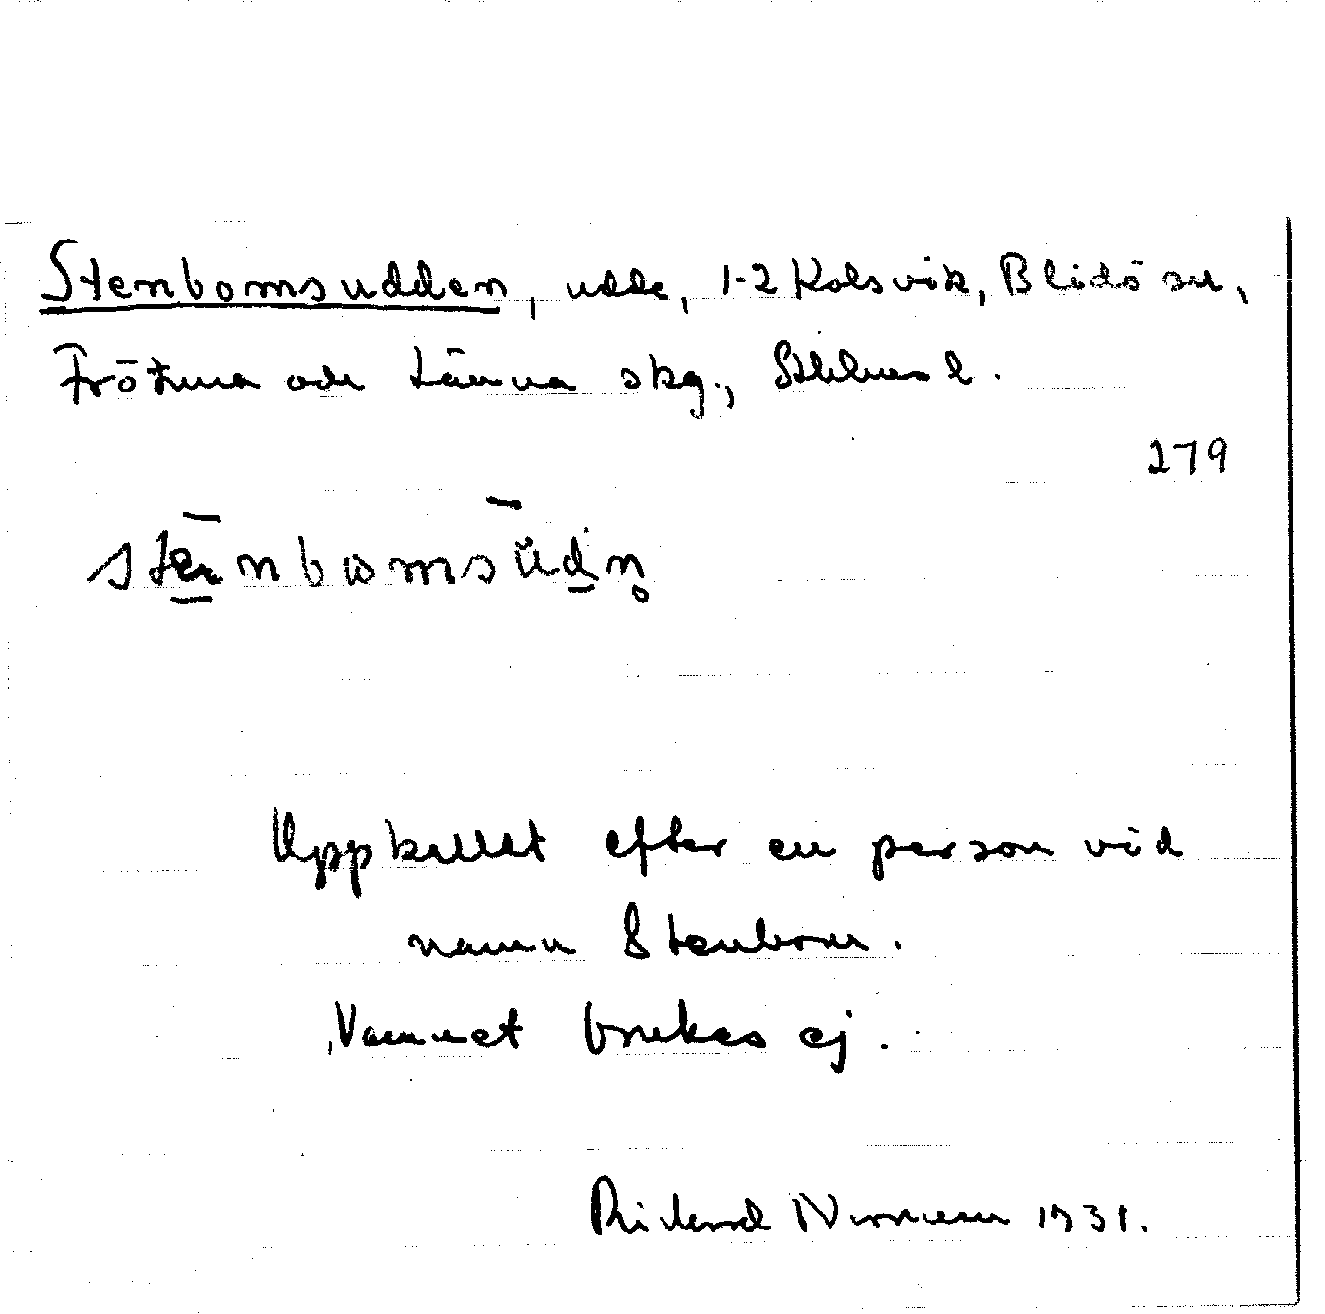 Stenbomsudden, udde, 1-2 Kolsvik, Blidö sn,
Frötuna och Länna skg., Sthlms l.
279
stēnbomsūdn̥
Uppkallat efter en person vid
namn Stenbom.
Namnet brukas ej.
Rickard 1931.